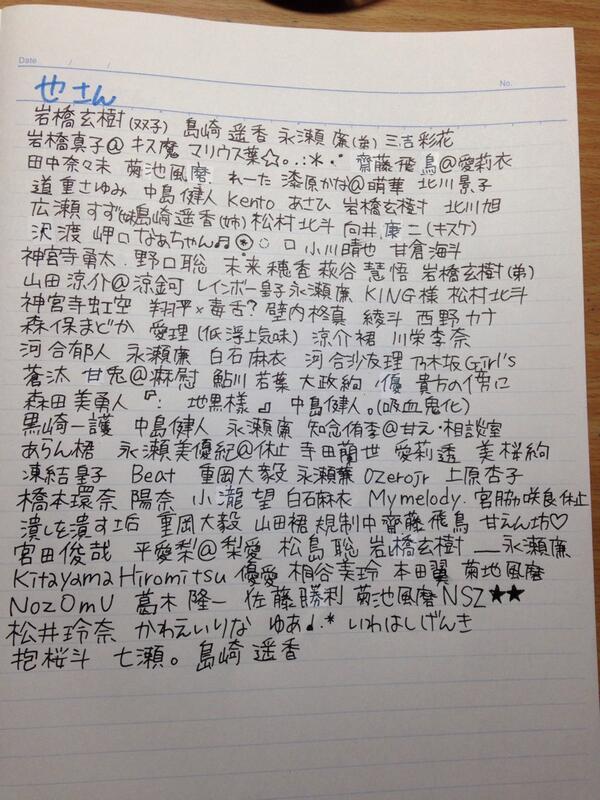 Date / /
No.
せさん
岩橋玄樹(双子) 島崎遥香 永瀬廉(弟) 三吉彩花
岩橋真子@ キス魔 マリウス葉☆。.:*・° 齋藤飛鳥@愛莉衣
田中奈々未 菊池風磨. れーた 漆原かな@萌華 北川景子
道重さゆみ 中島健人 Kento あさひ 岩橋玄樹 北川旭
広瀬すず(妹)島崎遥香(姉) 松村北斗 向井康二(キスケ)
沢渡岬ロなあちゃん♫ ロ 小川晴也 甘倉海斗
神宮寺勇太. 野口聡 未来穂香 萩谷慧悟 岩橋玄樹(弟)
山田涼介@涼 レインボー皇子永瀬廉 KING様 松村北斗
神宮寺虹空 翔平×毒舌? 壁内格真 綾斗 西野カナ
森保まどか 愛理(低浮上気味) 涼介裙 川栄李奈
河合郁人 永瀬廉 白石麻衣 河合沙友理 乃木坂Girl's
蒼汰 甘鬼@麻慰 鮎川若葉 大政絢 優 貴方の傍に
森田美勇人 『: 地黒様 』 中島健人。(吸血鬼化)
黒崎一護 中島健人 永瀬廉 知念侑李@甘え・相談室
あらん桾 永瀬美優紀@休止 寺田蘭世 愛莉透 美桜絢
凍結皇子 Beat 重岡大毅 永瀬簾 Ozerojr 上原杏子
橋本環奈 陽奈 小瀧望 白石麻衣 Mymelody. 宮脇咲良休止
潰しを潰す垢 重岡大毅 山田裙規制中 齋藤飛鳥 甘えん坊♡
宮田俊哉 平愛梨@梨愛 松島聡 岩橋玄樹 __永瀬廉
Kitayama Hiromitsu 優愛 相谷美玲 本田翼 菊地風磨
NozOmU 葛木隆一 佐藤勝利 菊池風磨 NSZ★★
松井玲奈 かわえいりな ゆあ♩.* いわはしげんき
抱桜斗 七瀬。 島崎遥香